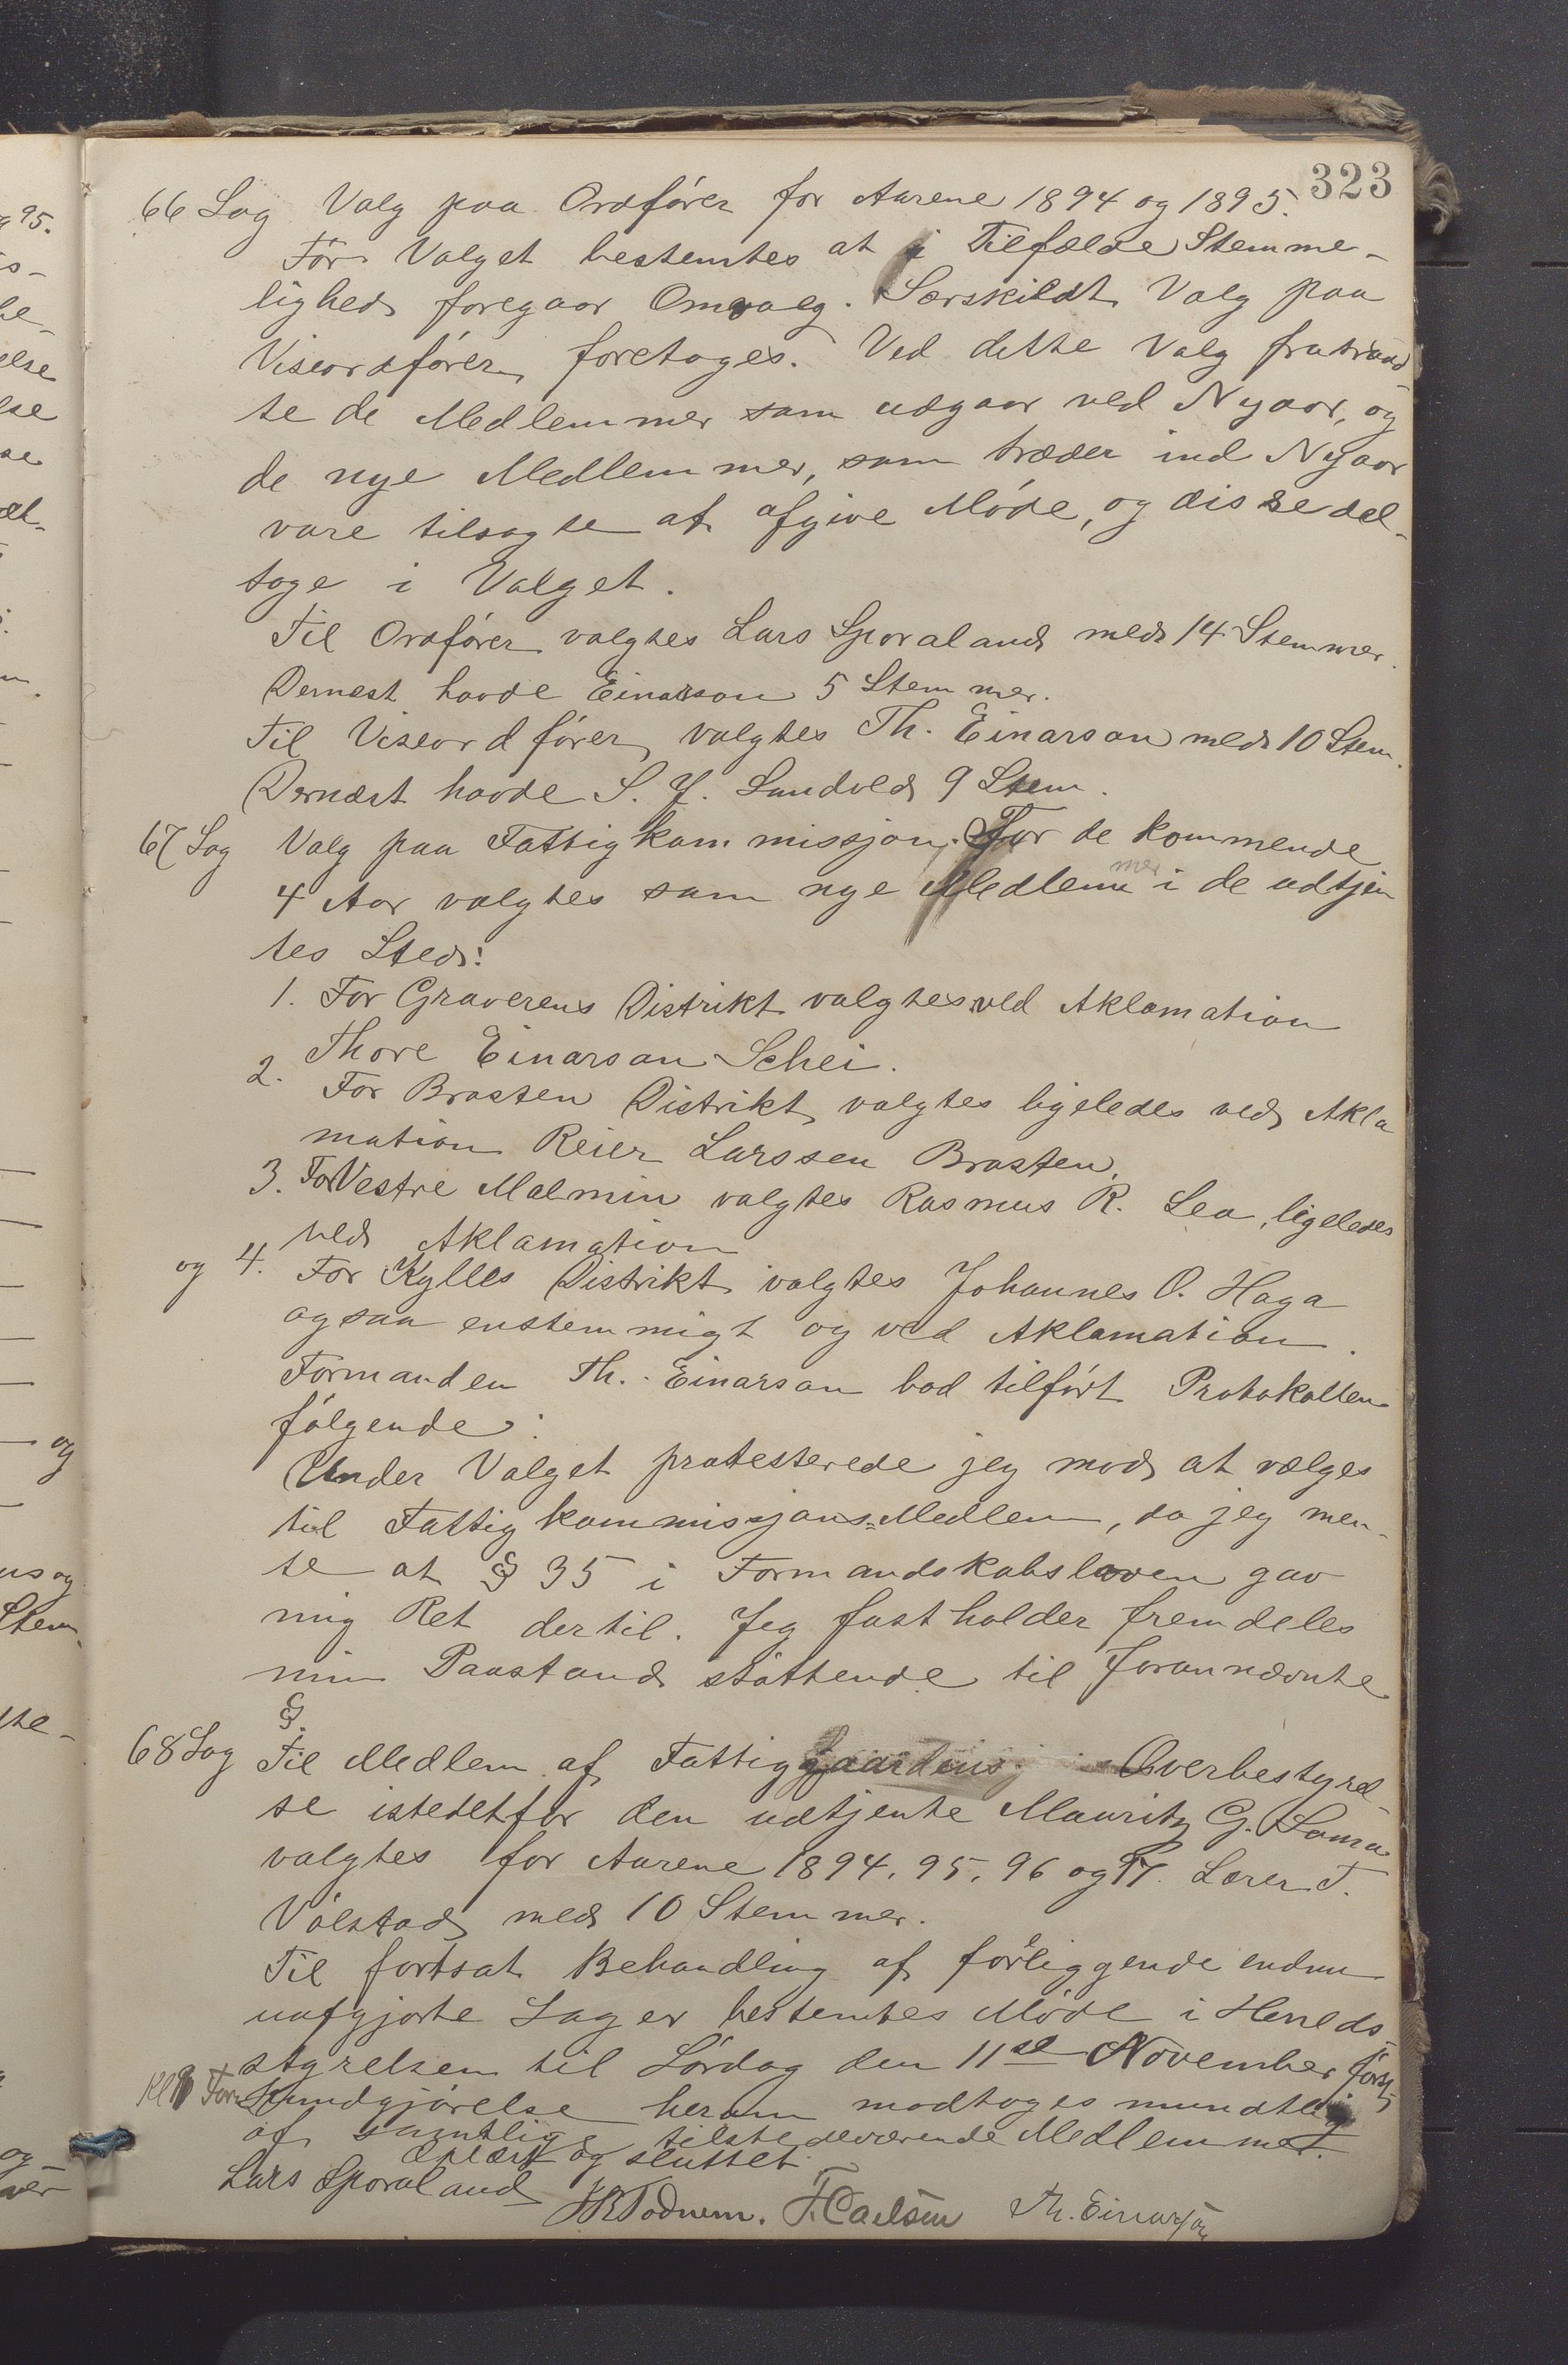 323
66 Sag Valg paa Ordfører for Aarene 1894 og 1895.
Før Valget bestemtes at i Tilfælde Stemme-
lighed foregaar Omvalg. Særskildt Valg paa
Viseordfører foretages. Ved dette Valg fratraad
te de Medlemmer som udgaar ved Nyaar, og
de nye Medlemmer, som træder ind Nyaar
vare tilsagte at afgive Møde, og disse del-
toge i Valget.
Til Ordfører valgtes Lars Sporaland med 14 Stemmer.
Dernest havde Einarson 5 Stemmer.
Til Viseordfører valgtes Th. Einarson med 10 Stem.
Dernæst havde S. J. Sandved 9 Stem.
67 Sag Valg paa Fattigkommissjon. For de kommende
4 Aar valgtes som nye Medlemmer i de udtjen
tes Sted:
1. For Graverens Distrikt valgtes ved Aklamation
Thore Einarson Schei.
2. For Brasten Distrikt valgtes ligeledes ved Akla
mation Reier Larssen Brasten.
3. For Vestre Malmin valgtes Rasmus R. Lea, ligeledes
ved Aklamation
og 4. For Kylles Distrikt valgtes Johannes O. Haga
ogsaa enstemmigt og ved Aklamation.
Formanden Th. Einarson bad tilført Protokollen
følgende:
Under Valget protesterede jeg mod at vælges
til Fattigkommissjons-Medlem, da jeg men-
te at § 35 i Formandskabsloven gav
mig Ret dertil. Jeg fastholder fremdeles
min Paastand støttende til forannævnte
§.
68 Sag Til Medlem af Fattiggaardens Overbestyrel-
se istedetfor den udtjente Mauritz G. Loma
valgtes for Aarene 1894, 95, 96 og 97. Lærer T.
Vølstad med 10 Stemmer.
Til fortsat Behandling af foreliggende endnu
uafgjorte Sager bestemtes Møde i Herreds-
styrelsen til Lørdag den 11te November først
Kl 9 Form. Kundgjørelse herom modtoges mundtlig
af samtlige tilstedeværende Medlemmer.
Oplæst og sluttet.
Lars Sporaland Th. Einarson